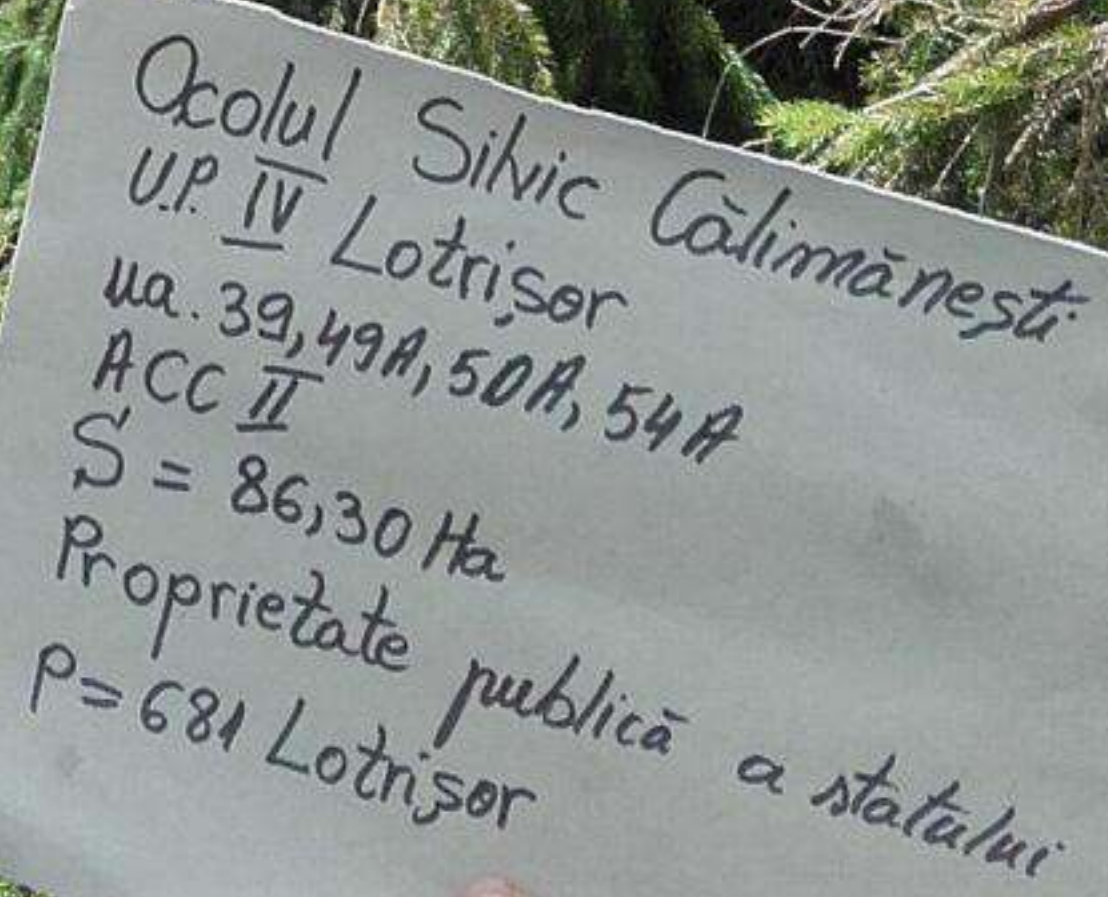 Ocolul Silvic Călimănești
U.P. IV Lotrișor
ua. 39, 49A, 50A, 54A
ACC II
S = 86,30 Ha
Proprietate publică a statului
P = 681 Lotrișor